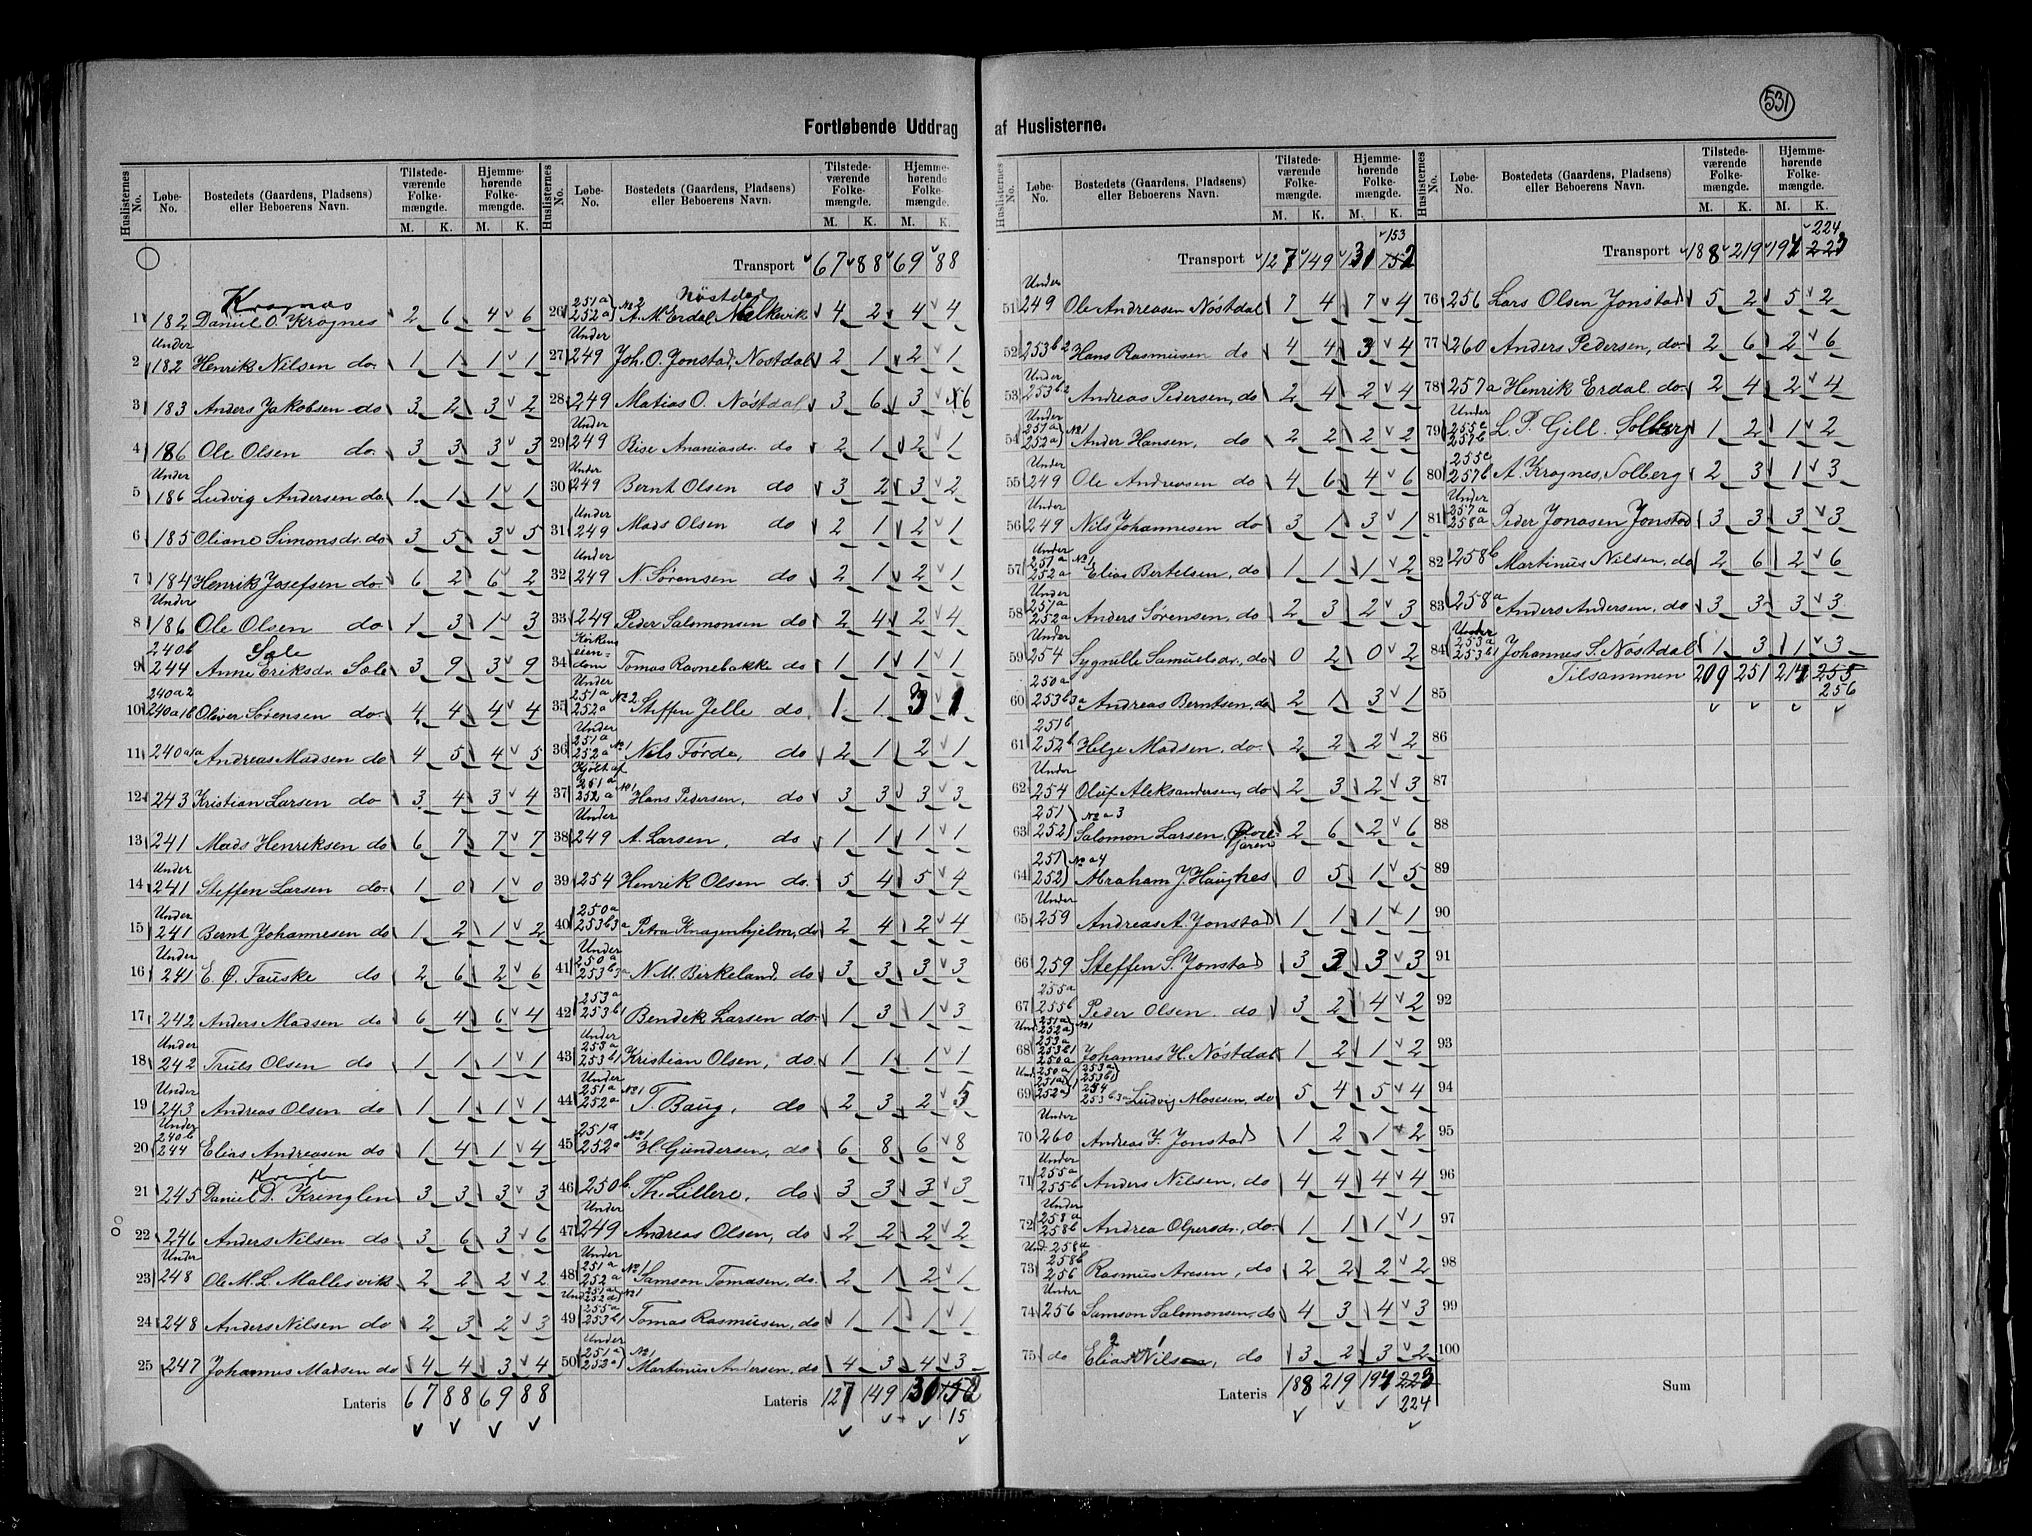 531
Fortløbende Uddrag af Huslisterne.
Huslisternes No. | Løbe-No. | Bostedets (Gaardens, Pladsens) eller Beboerens Navn. | Tilstedeværende Folkemængde. M. K. | Hjemmehørende Folkemængde. M. K.
Kragnæs
1 182 Daniel O. Kragnes 2 6 4 6
2 Under 182 Henrik Nilsen do. 1 1 1 1
3 183 Anders Jakobsen do 3 2 3 2
4 186 Ole Olsen do. 3 3 3 3
5 Under 186 Ludvig Andersen do. 1 1 1 1
6 185 Oliane Simonsdr. do 3 5 3 5
7 184 Henrik Josefsen do. 6 2 6 2
8 Under 186 Ole Olsen do 1 3 1 3
9 240b 244 Anne Eriksdr. Sæle 3 9 3 9
10 240a2 240a1b Oliver Sørensen do. 4 4 4 4
11 240a1a Andreas Madsen do 4 5 4 5
12 243 Kristian Larsen do 3 4 3 4
13 241 Mads Henriksen do 6 7 7 7
14 Under 241 Steffen Larsen do. 1 0 1 0
15 Under 241 Bernt Johannesen do 1 2 1 2
16 Under 241 E. Ø. Fauske do 2 6 2 6
17 242 Anders Madsen do 6 4 6 4
18 Under 242 Truls Olsen do 1 1 1 1
19 Under 243 Andreas Olsen do 1 1 1 1
20 Under 240b 244 Elias Andreasen do 1 4 1 4
21 245 Daniel D. Kringlen 3 3 3 3
22 246 Anders Nilsen do 3 6 3 6
23 Under 248 Ole M. L. Mallesvik 2 2 2 2
24 248 Anders Nilsen do 2 3 2 3
25 247 Johannes Madsen do 4 4 3 4
Lateris 67 88 69 88
Transport 67 88 69 88
26 251a 252a No 2 A. M. Erdal Nøstdal 4 2 4 4
27 Under 249 Joh. O. Jonstad, Nøstdal 2 1 2 1
28 249 Matias O. Nøstdal 3 6 3 6
29 Under 249 Bise Ananiasdr. do 2 1 2 1
30 Under 249 Bernt Olsen do 3 2 3 2
31 Under 249 Mads Olsen do 2 1 2 1
32 Under 249 N. Sørensen do 2 1 2 1
33 249 Peder Salomonsen do 2 4 2 4
34 Kirkens eiendom Tomas Ravnebakke do 1 1 1 1
35 Under 251a 252a No 2 Steffen Jelle do 1 1 3 1
36 Under 251a 252a No 1 Nils Førde, do 2 1 2 1
37 251a 252a No 1 Hans Pedersen, do 3 3 3 3
38 Under 249 A. Larsen, do 1 1 1 1
39 254 Henrik Olsen do. 5 4 5 4
40 250a 253b3a Petra Knagenhjelm, do 2 4 2 4
41 Under 250a 253b3a N. M. Birkeland, do 3 3 3 3
42 253a 253b1 Bendik Larsen do. 1 3 1 3
43 Under 253a 253b1 Kristian Olsen, do. 1 1 1 1
44 Under 251a 252a No 1 T. Baug, do 2 3 2 5
45 251a 252a No 1 H. Gundersen, do 6 8 6 8
46 250b Th. Lillere, do 3 3 3 3
47 Under 249 Andreas Olsen, do 2 2 2 2
48 Under 251a 252a No 1 Samson Tomasen, do. 2 1 2 1
49 Und. 251a 252a No 1 255a 253b1 Tomas Rasmusen, do 1 1 1 1
50 Under 251a 252a No 1 Martinus Andersen, do 4 3 4 3
Lateris 127 149 130 152
15
Transport 127 149 131 152
153
51 Under 249 Ole Andreasen Nøstdal 7 4 7 4
52 253b2 Hans Rasmusen do 4 4 3 4
53 Under 253b2 Andreas Pedersen, do 2 4 2 4
54 Under 251a 252a No 1 Ander Hansen, do 2 2 2 2
55 Under 249 Ole Andreasen do 4 6 4 6
56 Under 249 Nils Johannesen do 3 1 3 1
57 Under 251a 252a No 1 Elias Bertelsen, do 1 1 1 2
58 Under 251a 252a Anders Sørensen, do 2 3 2 3
59 Under 254 Sygnille Samuelsdr., do 0 2 0 2
60 250a 253b3a Andreas Berntsen, do 2 1 3 1
61 251b 252b Helge Madsen, do. 2 2 2 2
62 Under 254 Oluf Aleksandersen, do 2 3 2 3
63 251 252 No a 3 Salomon Larsen, 2 6 2 6
64 251 252 No a 4 Abraham J. Haugnes 0 5 1 5
65 Under 259 Andreas A. Jonstad 1 1 1 1
66 259 Steffen S. Jonstad 3 3 3 3
67 255a 255b Peder Olsen do 3 2 4 2
68 Und. 251a 252a No 1 253a 253b1 250a Johannes H. Nøstdal 1 2 1 2
69 Und. 250a 251a 252a 253a 253b1 254 253b3a Ludvig Mosesen, do 5 4 5 4
70 Under 260 Andreas J. Jonstad 1 2 1 2
71 Under 255a 255b Anders Nilsen, do 4 4 4 4
72 Under 258a 258b Andrea Olpersdr., do. 1 1 1 1
73 Und. 258a 258b 256 Rasmus Aresen, do 2 2 2 2
74 Under 256 Samson Salomonsen, do 4 3 4 3
75 do Elias Nilsen, do 3 2 3 2
Lateris 188 219 194 223
224
Transport 188 219 194 223
224
76 256 Lars Olsen Jonstad 5 2 5 2
77 260 Anders Pedersen, do. 2 6 2 6
78 257a Henrik Erdal do. 2 4 2 4
79 Under 255c 257b L. P. Gill. Solberg 1 2 1 2
80 255c 257b A. Kragnes, Solberg 2 3 1 3
81 Under 257a 258a Peder Jonasen Jonstad 3 3 3 3
82 258b Martinus Nilsen, do 2 6 2 6
83 258a Anders Andersen, do 3 3 3 3
84 Under 253a 253b1 Johannes S. Nøstdal 1 3 1 3
Tilsammen 209 251 214 255
256
85
86
87
88
89
90
91
92
93
94
95
96
97
98
99
100
Sum